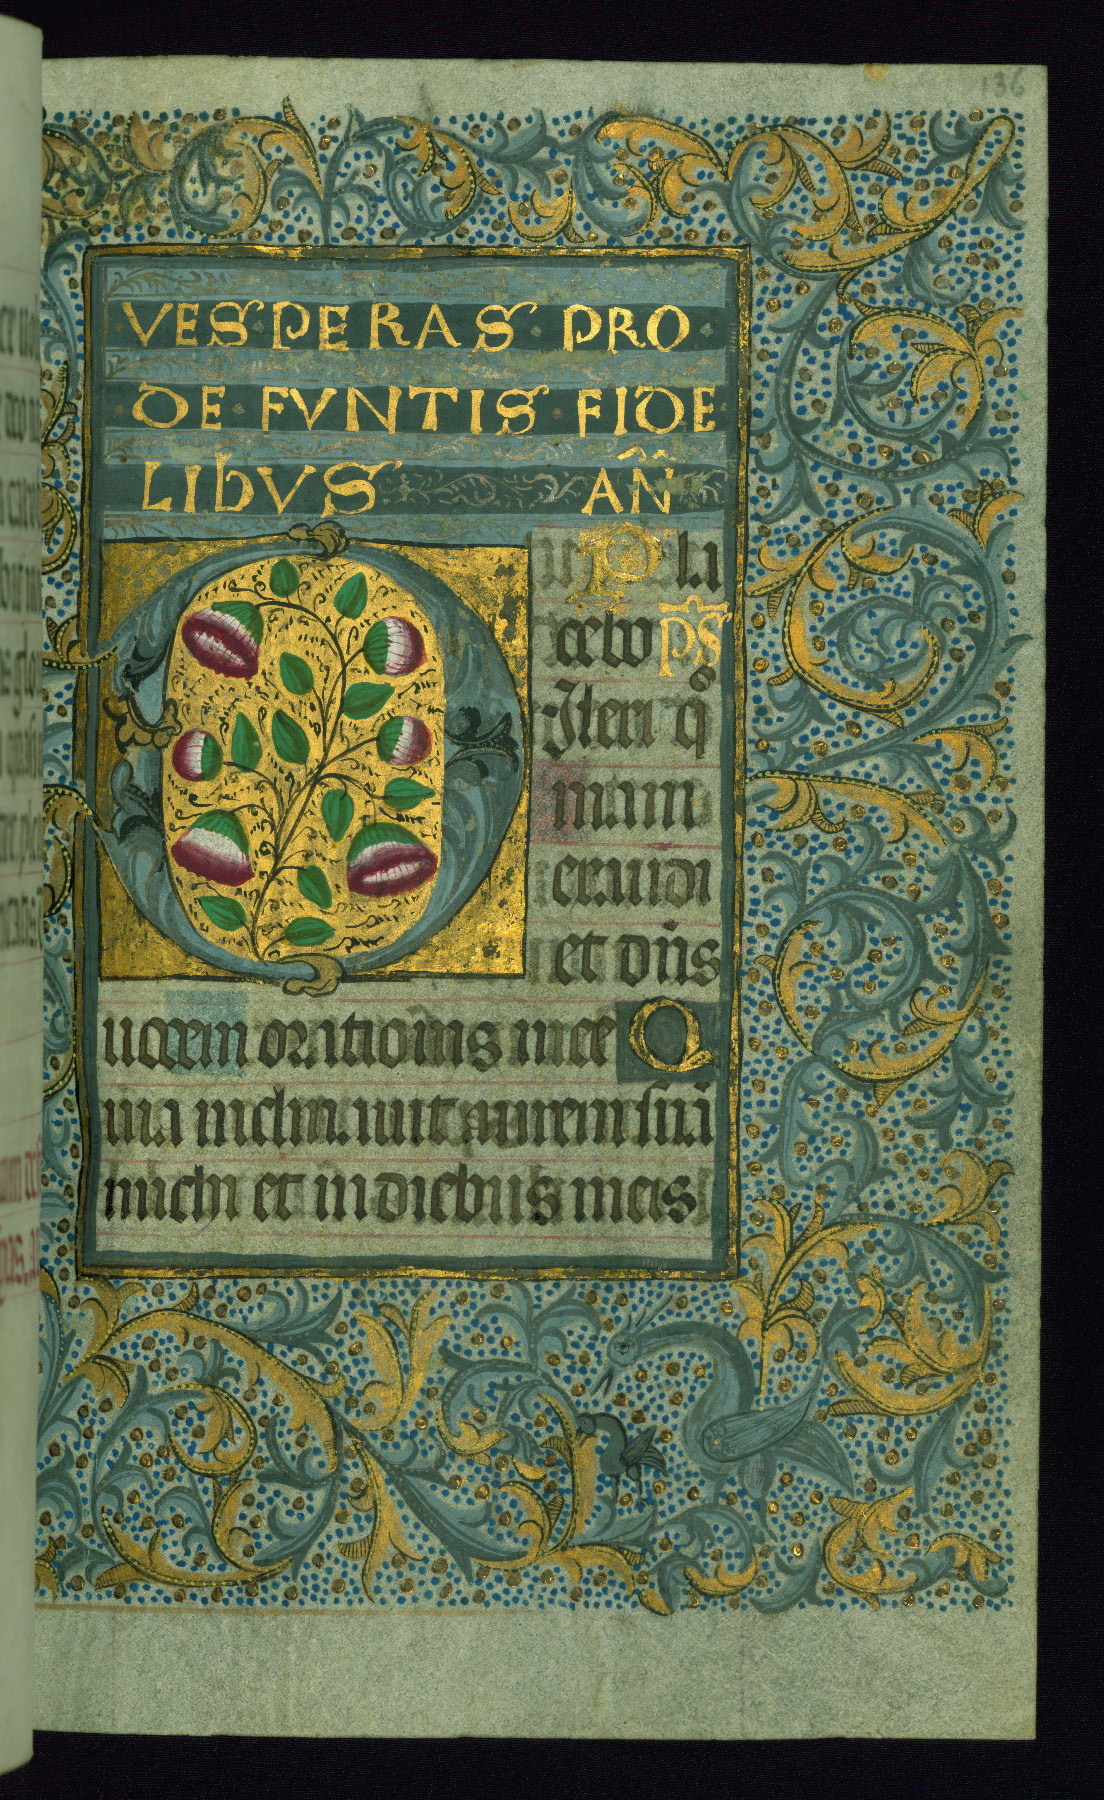 136
VESPERAS PRO
DE FVNTIS FIDE
LIbVS AÑ
Pla
cebo ps̃
Ilexi q̃
niam
exaudi
et dñs
uocem orationis mee Q
uia inclinauit aurem suã
michi et in diebus meis